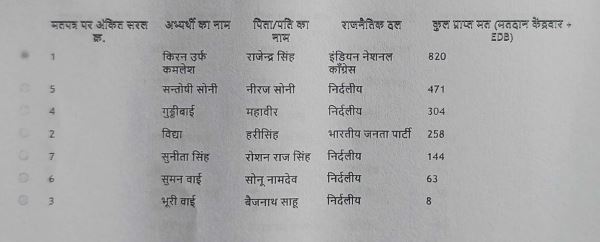 मतपत्र पर अंकित सरल अभ्यर्थी का नाम पिता/पति का राजनैतिक दल कुल प्राप्त मत (मतदान केंद्रवार +
क्र. नाम EDB)
1 किरन उर्फ राजेन्द्र सिंह इंडियन नेशनल 820
कमलेश काँग्रेस
5 सन्तोषी सोनी नीरज सोनी निर्दलीय 471
4 गुड्डीबाई महावीर निर्दलीय 304
2 विद्या हरीसिंह भारतीय जनता पार्टी 258
7 सुनीता सिंह रोशन राज सिंह निर्दलीय 144
6 सुमन वाई सोनू नामदेव निर्दलीय 63
3 भूरी वाई बैजनाथ साहू निर्दलीय 8